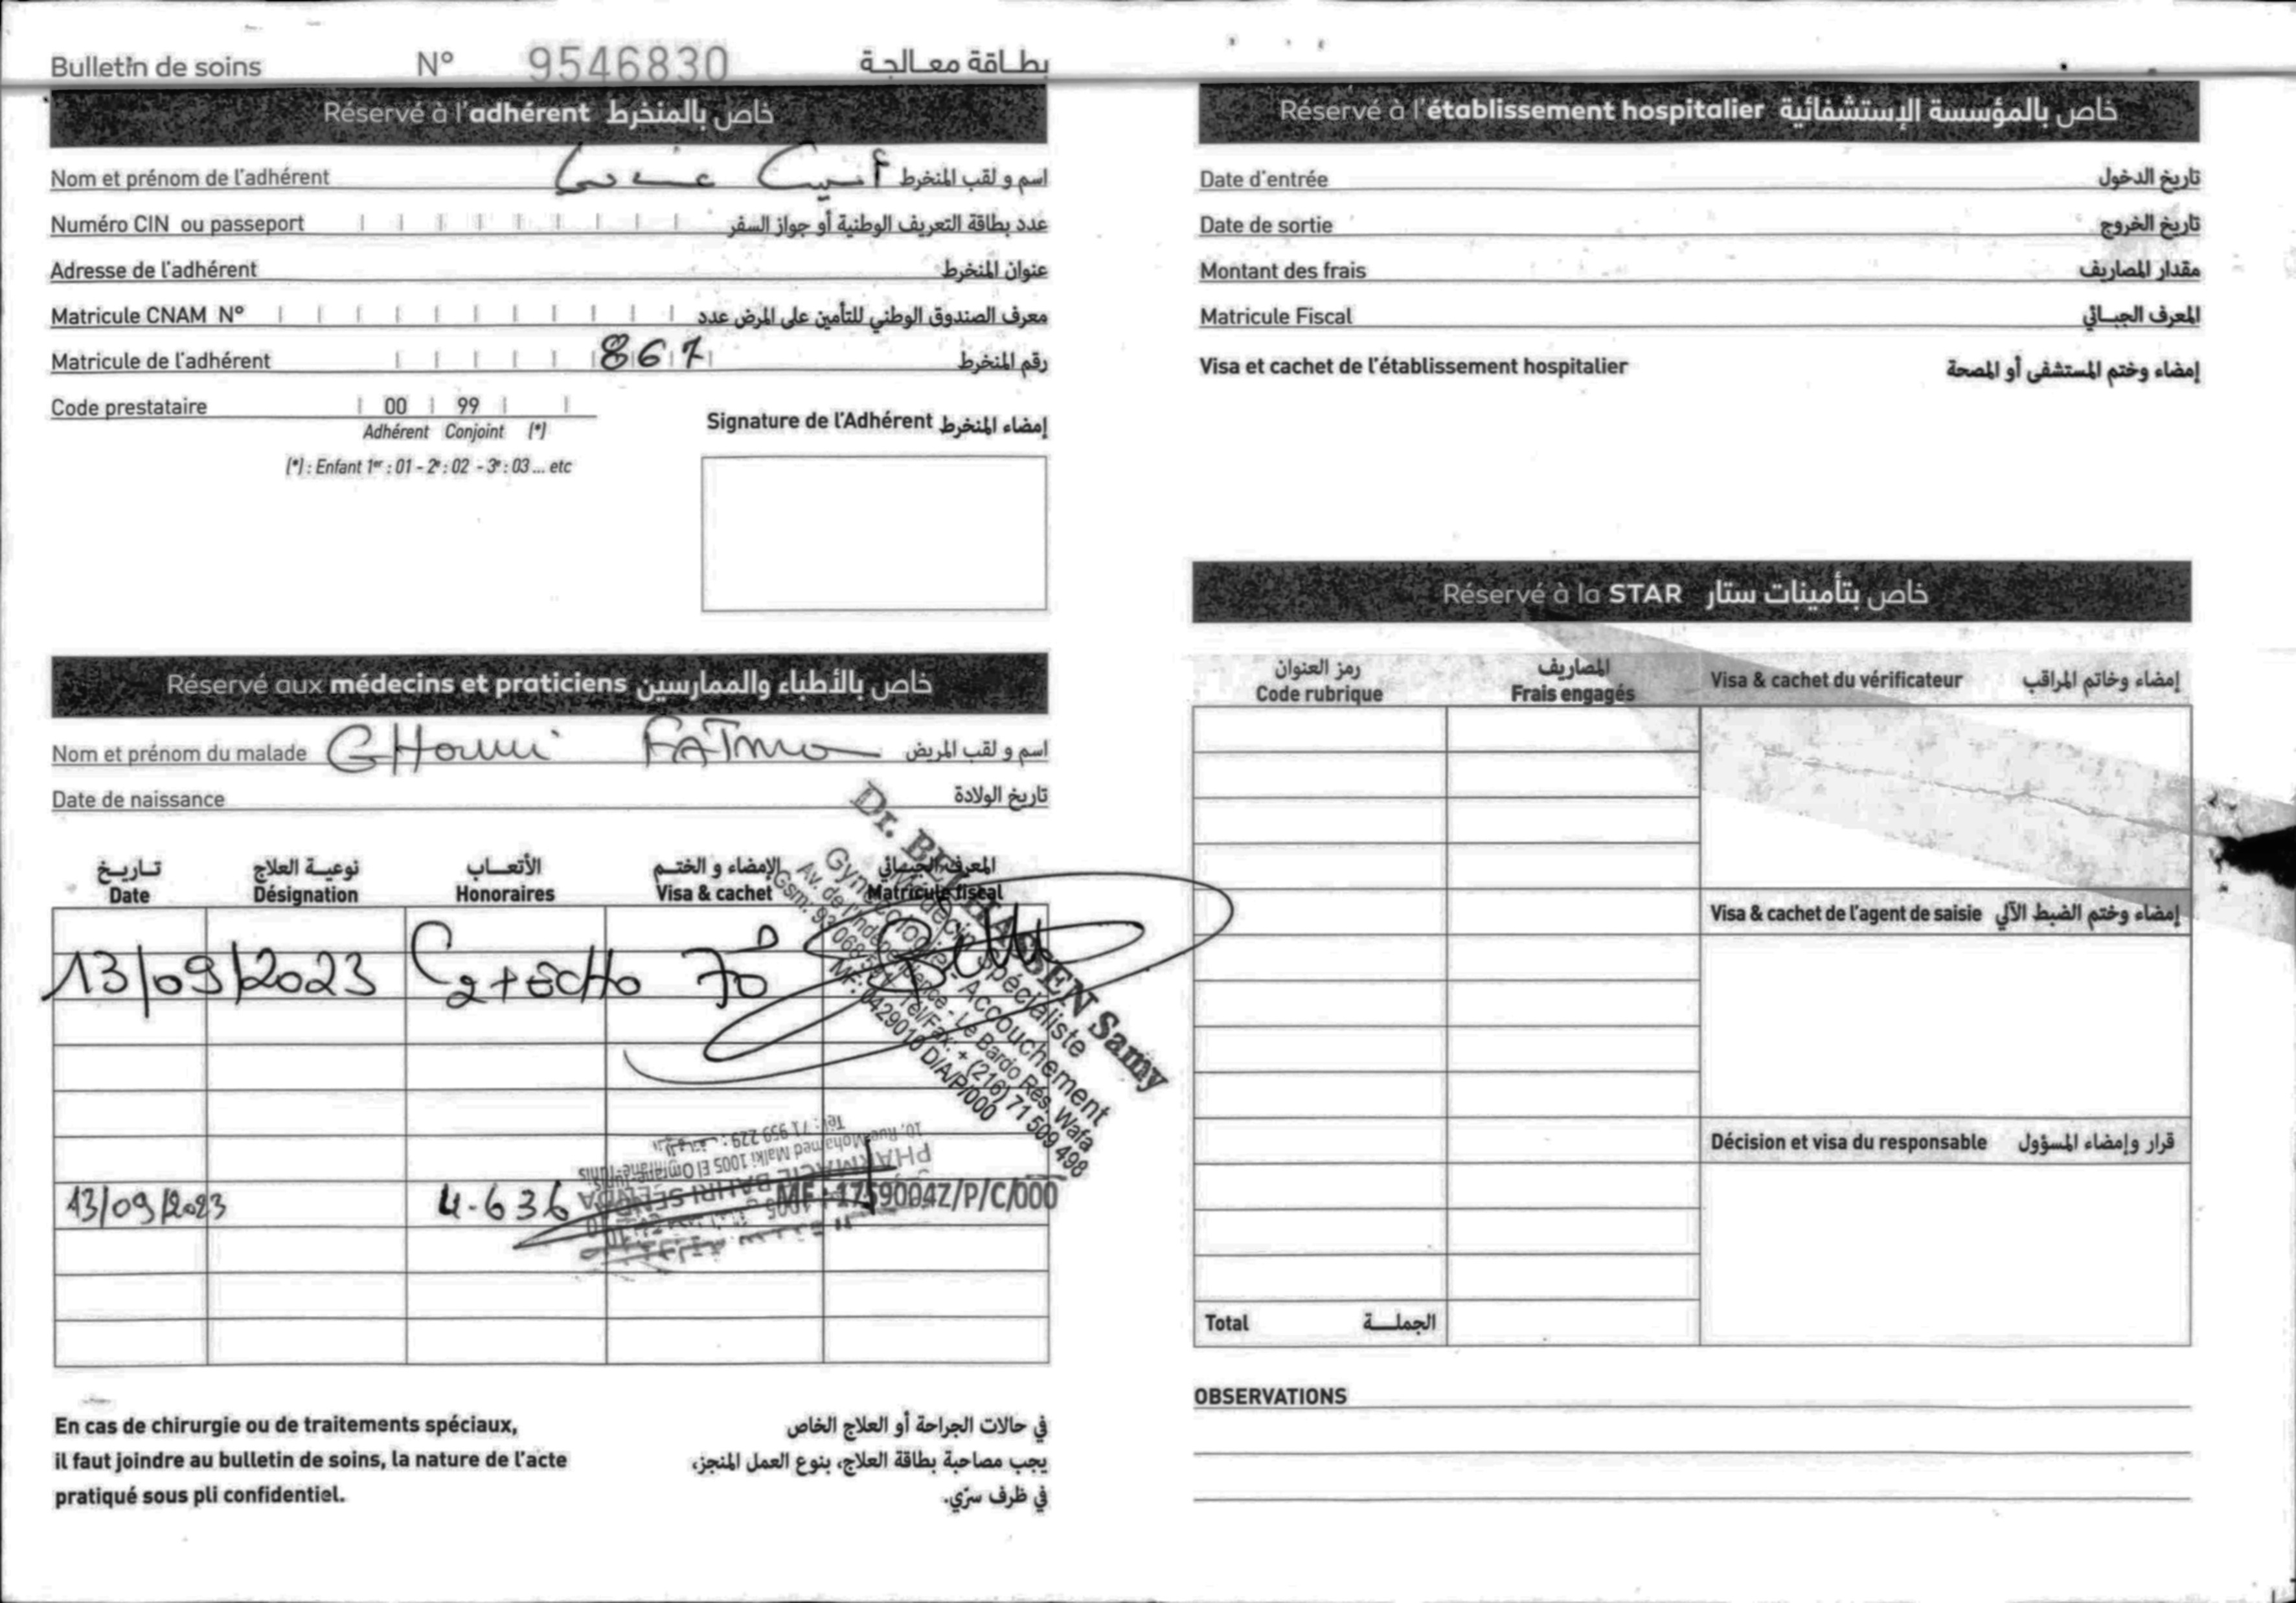 Bulletin de soins N° 9546830 بطاقة معالجة
Réservé à l'adhérent خاص بالمنخرط
Nom et prénom de l'adhérent اسم و لقب المنخرط
Numéro CIN ou passeport عدد بطاقة التعريف الوطنية أو جواز السفر
Adresse de l'adhérent عنوان المنخرط
Matricule CNAM N° معرف الصندوق الوطني للتأمين على المرض عدد
Matricule de l'adhérent 867 رقم المنخرط
Code prestataire 00 99
Adhérent Conjoint (*)
(*) : Enfant 1er : 01 - 2e : 02 - 3e : 03 ... etc
Signature de l'Adhérent إمضاء المنخرط
Réservé aux médecins et praticiens خاص بالأطباء والممارسين
Nom et prénom du malade GHOUMI FATMA اسم و لقب المريض
Date de naissance تاريخ الولادة
تـاريـخ نوعيـة العلاج الأتعـاب الإمضاء و الختـم المعرف الجبـائي
Date Désignation Honoraires Visa & cachet Matricule fiscal
13/09/2023 C2+écho 70D
Dr. BELHASSEN Samy
Médecin Spécialiste
Gynécologie - Accouchement
Av. de l'Indépendence - Le Bardo Rés. Wafa
Tél/Fax: + (216) 71 509 498
MF: 0429010 D/A/P/000
13/09/2023 4.636
PHARMACIE BAHRI SEENDA
10, Rue Mohamed Malki 1005 El Omrane-Tunis
Tél : 71 959 229
MF : 1759004Z/P/C/000
En cas de chirurgie ou de traitements spéciaux,
il faut joindre au bulletin de soins, la nature de l'acte
pratiqué sous pli confidentiel.
في حالات الجراحة أو العلاج الخاص
يجب مصاحبة بطاقة العلاج، بنوع العمل المنجز،
في ظرف سرّي.
Réservé à l'établissement hospitalier خاص بالمؤسسة الإستشفائية
Date d'entrée تاريخ الدخول
Date de sortie تاريخ الخروج
Montant des frais مقدار المصاريف
Matricule Fiscal المعرف الجبـائي
Visa et cachet de l'établissement hospitalier إمضاء وختم المستشفى أو المصحة
Réservé à la STAR خاص بتأمينات ستار
رمز العنوان المصاريف
Code rubrique Frais engagés Visa & cachet du vérificateur إمضاء وخاتم المراقب
Visa & cachet de l'agent de saisie إمضاء وختم الضبط الآلي
Décision et visa du responsable قرار وإمضاء المسؤول
Total الجملـــة
OBSERVATIONS